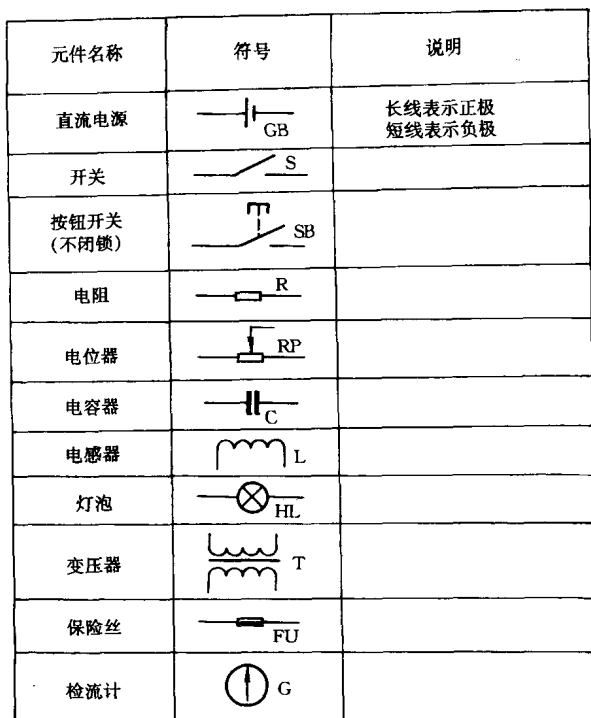 元件名称 符号 说明
直流电源 GB 长线表示正极
短线表示负极
开关 S
按钮开关
(不闭锁) SB
电阻 R
电位器 RP
电容器 C
电感器 L
灯泡 HL
变压器 T
保险丝 FU
检流计 G